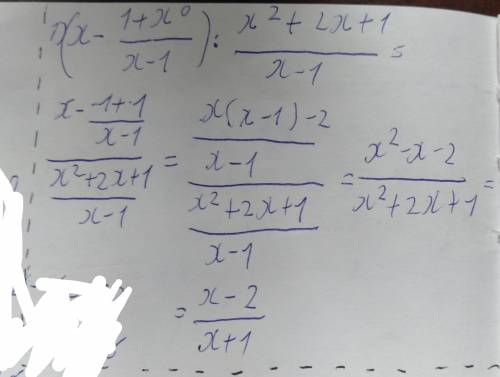 1) (x - \frac{1+x^0}{x-1}) : \frac{x^2+2x+1}{x-1} =
\frac{x - \frac{1+1}{x-1}}{\frac{x^2+2x+1}{x-1}} = \frac{\frac{x(x-1)-2}{x-1}}{\frac{x^2+2x+1}{x-1}} = \frac{x^2-x-2}{x^2+2x+1} =
= \frac{x-2}{x+1}